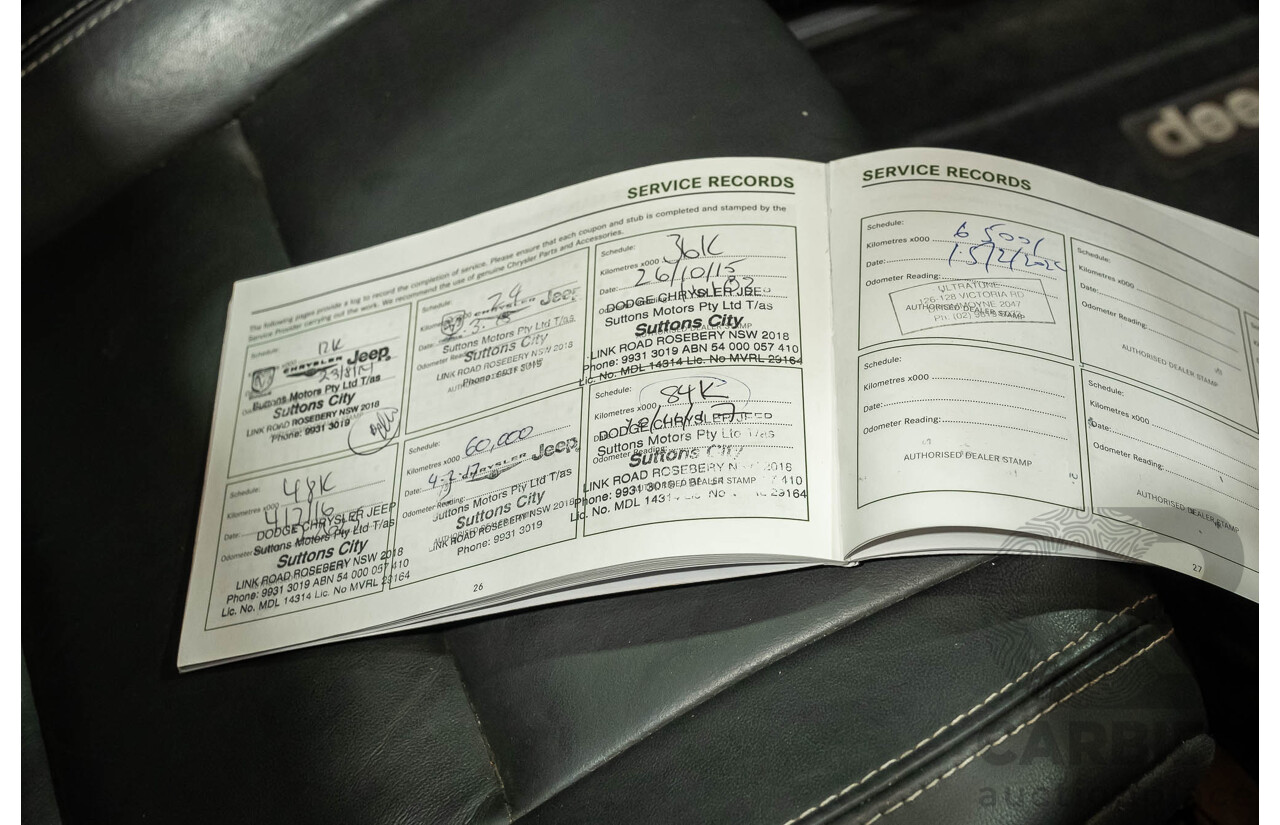 SERVICE RECORDS
The following pages provide a log to record the completion of service. Please ensure that each coupon and stub is completed and stamped by the
Service Provider carrying out the work. We recommend the use of genuine Chrysler Parts and Accessories.
Schedule: 12K
CHRYSLER Jeep
23/8/14
Suttons Motors Pty Ltd T/as
Suttons City
LINK ROAD ROSEBERY NSW 2018
Phone: 9931 3019
Schedule: 24
CHRYSLER Jeep
Date:
Suttons Motors Pty Ltd T/as
Odometer Reading:
Suttons City
LINK ROAD ROSEBERY NSW 2018
Phone: 9931 3019
Schedule: 36K
Kilometres x000
Date: 26/10/15
DODGE CHRYSLER JEEP
Suttons Motors Pty Ltd T/as
Suttons City
AUTHORISED DEALER STAMP
LINK ROAD ROSEBERY NSW 2018
Phone: 9931 3019 ABN 54 000 057 410
Lic. No. MDL 14314 Lic. No MVRL 29164
Schedule: 48K
Kilometres x000
Date: 4/2/16
DODGE CHRYSLER JEEP
Odometer
Suttons Motors Pty Ltd T/as
Suttons City
LINK ROAD ROSEBERY NSW 2018
Phone: 9931 3019 ABN 54 000 057 410
Lic. No. MDL 14314 Lic. No MVRL 29164
Schedule:
Kilometres x000 60,000
Date: CHRYSLER Jeep
Odometer Reading:
Suttons Motors Pty Ltd T/as
Suttons City
LINK ROAD ROSEBERY NSW 2018
Phone: 9931 3019
Schedule:
Kilometres x000 84K
DODGE CHRYSLER JEEP
Suttons Motors Pty Ltd T/as
Odometer Reading:
Suttons City
LINK ROAD ROSEBERY NSW 2018
AUTHORISED DEALER STAMP
Phone: 9931 3019 ABN 54 000 057 410
Lic. No. MDL 14314 Lic. No MVRL 29164
26
SERVICE RECORDS
Schedule:
Kilometres x000
Date:
Odometer Reading:
ULTRATUNE
126-128 VICTORIA RD
AUTHORISED DEALER STAMP
DRUMMOYNE 2047
Schedule:
Kilometres x000
Date:
Odometer Reading:
AUTHORISED DEALER STAMP
Schedule:
Kilometres x000
Date:
Odometer Reading:
AUTHORISED DEALER STAMP
Schedule:
Kilometres x000
Date:
Odometer Reading:
AUTHORISED DEALER STAMP
27